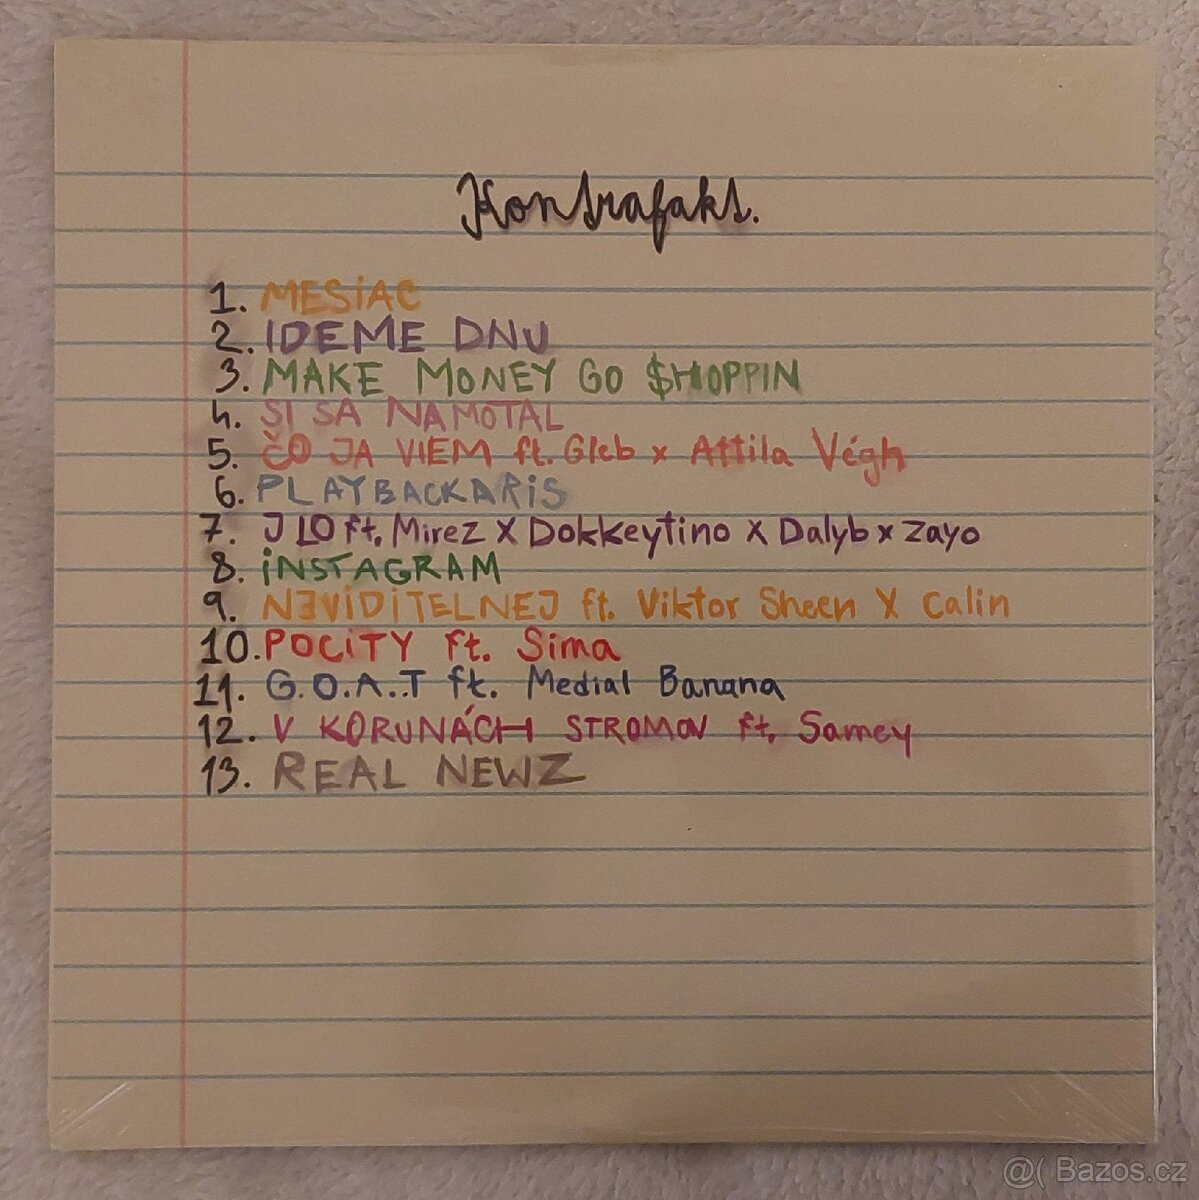 Kontrafakt.
1. MESiAC
2. IDEME DNU
3. MAKE MONEY GO $HOPPIN
4. SI SA NAMOTAL
5. ČO JA VIEM ft. Gleb x Attila Végh
6. PLAYBACKARiS
7. J LO ft. Mirez X Dokkeytino X Dalyb x Zayo
8. iNSTAGRAM
9. NEViDiTELNEJ ft. Viktor Sheen X Calin
10. POCiTY ft. Sima
11. G.O.A..T ft. Medial Banana
12. V KORUNÁCH STROMOV ft. Samey
13. REAL NEWZ
@( Bazos.cz